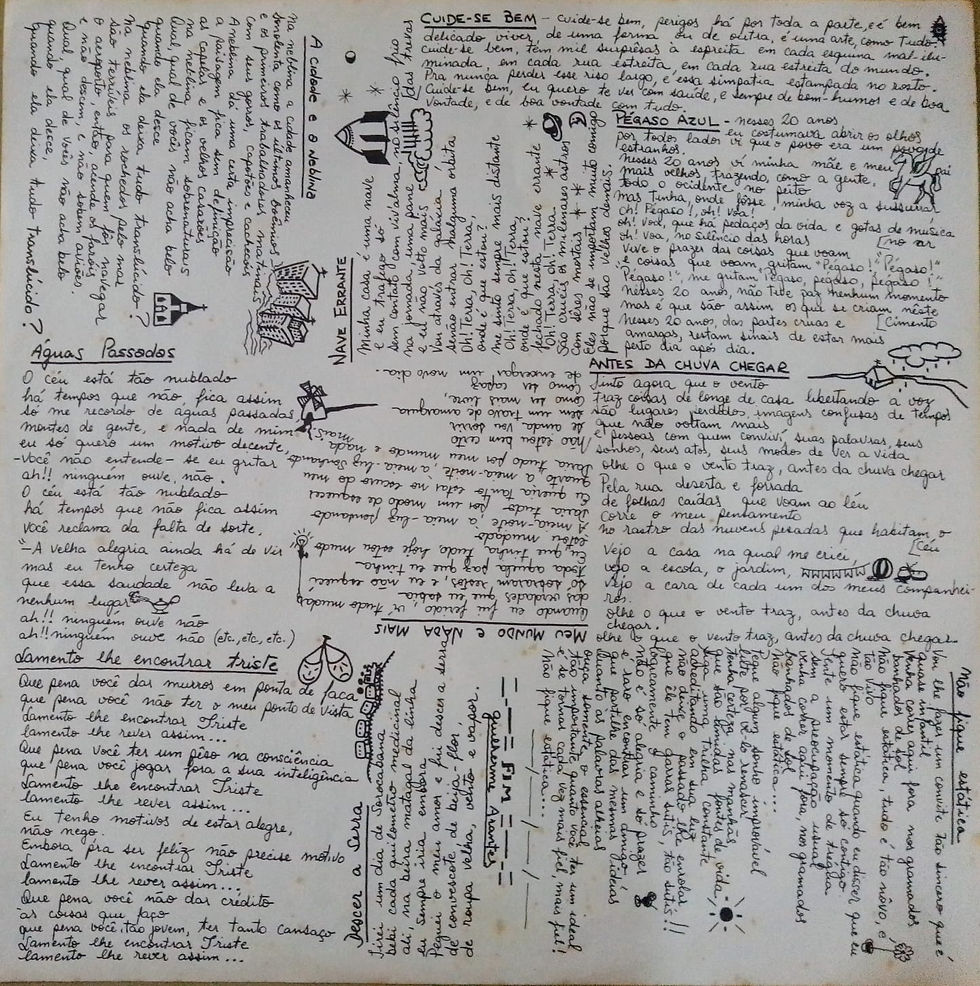 CUIDE-SE BEM - cuide-se bem, perigos há por toda a parte, e é bem
delicado viver, de uma forma ou de outra, é uma arte, como Tudo.
cuide-se bem, tem mil surpresas à espreita em cada esquina mal-ilu-
minada, em cada rua estreita, em cada rua estreita do mundo.
Pra nunca perder esse riso largo, e essa simpatia estampada no rosto.
Cuide-se bem, eu quero te ver com saúde, e sempre de bom-humor e de boa
vontade, e de boa vontade com tudo.
PEGASO AZUL - nesses 20 anos
eu costumava abrir os olhos
por todos lados vi que o povo era um povo de
estranhos.
Nesses 20 anos vi minha mãe e meu pai
mais velhos, trazendo, como a gente,
todo o ocidente no peito
mas Tinha, onde fôsse, minha voz a sussurrar
oh! Pégaso!, oh! Voa!
oh! Voa, que há pedaços da vida e gotas de música
[no ar
oh! Voa, no silêncio das horas
Vive o prazer das coisas que voam
e coisas que voam, gritam "Pégaso!" "Pégaso!"
"Pégaso!", me gritam "Pégaso, pégaso, pégaso!"
Nesses 20 anos, não tive paz nenhum momento
mas é que são assim os que se criam nêste
[Cimento
nesses 20 anos, das partes cruas e
amargas, restam sinais de estar mais
perto dia após dia.
ANTES DA CHUVA CHEGAR
Sinto agora que o vento
traz coisas de longe de casa libertando a voz
são lugares perdidos, imagens confusas de tempos
que não voltam mais
e pessoas com quem conviví, suas palavras, seus
sonhos, seus atos, seus modos de ver a vida
olhe o que o vento traz, antes da chuva chegar
Pela rua deserta e forrada
de folhas caídas que voam ao léu
corre o meu pensamento
no rastro das nuvens pesadas que habitam o
[Céu
Vejo a casa na qual me criei,
vejo a escola, o jardim,
vejo a cara de cada um dos meus companhei-
ros,
olhe o que o vento traz, antes da chuva
chegar.
olhe o que o vento traz, antes da chuva chegar
A cidade e a Neblina
Na neblina a cidade amanheceu
sonolenta como os últimos boêmios
e os primeiros trabalhadores matinais
com seus gorros, capotões e cachecois
A neblina dá uma certa imprecisão
a paisagem fica sem definição
as capelas e os velhos casarões
na neblina ficam sobrenaturais
Qual, qual de vocês não acha belo
quando ela desce
quando ela deixa tudo translúcido?
Na neblina os rochedos pelo mar
são terríveis para quem for navegar
o aeroporto, então, acende os faróis
e não descem, e não sobem aviões.
Qual, qual de vocês não acha belo
quando ela desce,
quando ela deixa tudo translúcido?
NAVE ERRANTE
Minha casa é uma nave
e eu trafego só
sem contato com vivalma no silêncio frio
[das trevas
na jornada, uma pane
e eu não volto mais
Vou através da galáxia
senão entrar nalguma órbita
Oh! Terra, oh! Terra,
onde é que estou?
me sinto sempre mais distante
Oh! Terra, oh! Terra,
onde é que estou?
fechado nesta nave errante
Oh! Terra, oh! Terra.
São cruéis os milenares astros
Com seres mortais
Eles não se importam muito comigo
porque são velhos demais.
Águas Passadas
O céu está tão nublado
há tempos que não fica assim
só me recordo de águas passadas
montes de gente, e nada de mim
eu só quero um motivo decente,
-você não entende- se eu gritar
ah!! ninguém ouve, não.
O céu está tão nublado
há tempos que não fica assim
você reclama da falta de sorte.
"-A velha alegria ainda há de vir
mas eu tenho certeza
que essa saudade não leva a
nenhum lugar
ah!! ninguém ouve não
ah!! ninguém ouve não (etc., etc., etc.)
MEU MUNDO E NADA MAIS
Quando eu fui ferido, vi tudo mudar
das verdades que eu sabia
Só sobraram restos, e eu não esqueci
toda aquela paz que eu tinha
Eu, que tinha tudo hoje estou mudo
estou mudado
À meia-noite, à meia-luz, pensando
daria tudo por um modo de esquecer
Eu queria tanto estar no escuro do meu
quarto à meia-noite, à meia-luz, sonhando
daria tudo por meu mundo e nada mais
Não estou bem certo
se ainda vou sorrir
sem um travo de amargura
como ser mais livre,
como ser capaz
de enxergar um novo dia.
Lamento lhe encontrar triste
Que pena você dar murros em ponta de faca
que pena você não ter o meu ponto de vista
Lamento lhe encontrar Triste
lamento lhe rever assim...
Que pena você ter um pêso na consciência
que pena você jogar fora a sua inteligência
Lamento lhe encontrar Triste
lamento lhe rever assim...
Eu tenho motivos de estar alegre,
não nego.
Embora pra ser feliz não precise motivo
Lamento lhe encontrar Triste
lamento lhe rever assim...
Que pena você não dar crédito
às coisas que faço
que pena você, tão jovem, ter tanto cansaço
Lamento lhe encontrar Triste
lamento lhe rever assim...
Descer a Serra
Tirei um dia de Sorocabana
bebi cada quilômetro medicinal
ali, na beira matagal da linha
eu sempre iria embora
Peguei o meu amor e fui descer a serra
de convescote de beija-flor,
de roupa velha, vento e vapor.
FIM
Guilherme Arantes
Não fique estática
Vou lhe fazer um convite tão sincero que é
quase infantil
venha correr aqui fora, nos gramados
banhados de sol
não fique estática, tudo é tão nôvo, e
tão vivo
não fique estática quando eu disser que eu
quero estar sempre só contigo
Tente um momento de trégua
sem a preocupação usual
venha correr aqui fora, nos gramados
banhados de sol
não fique estática...
Pegue algum sonho improvável
lute por vê-lo renascer,
tenha certeza nas manhãs,
que são infindas fontes de vida,
siga uma trilha constante
acreditando em sua luz
não deixe o passado lhe enrolar
que ele tem garras sutis, tão sutis!!
Faça somente o essencial
tão importante quanto você ter um ideal
e se tornar cada vez mais fiel, mais fiel!
não fique estática...